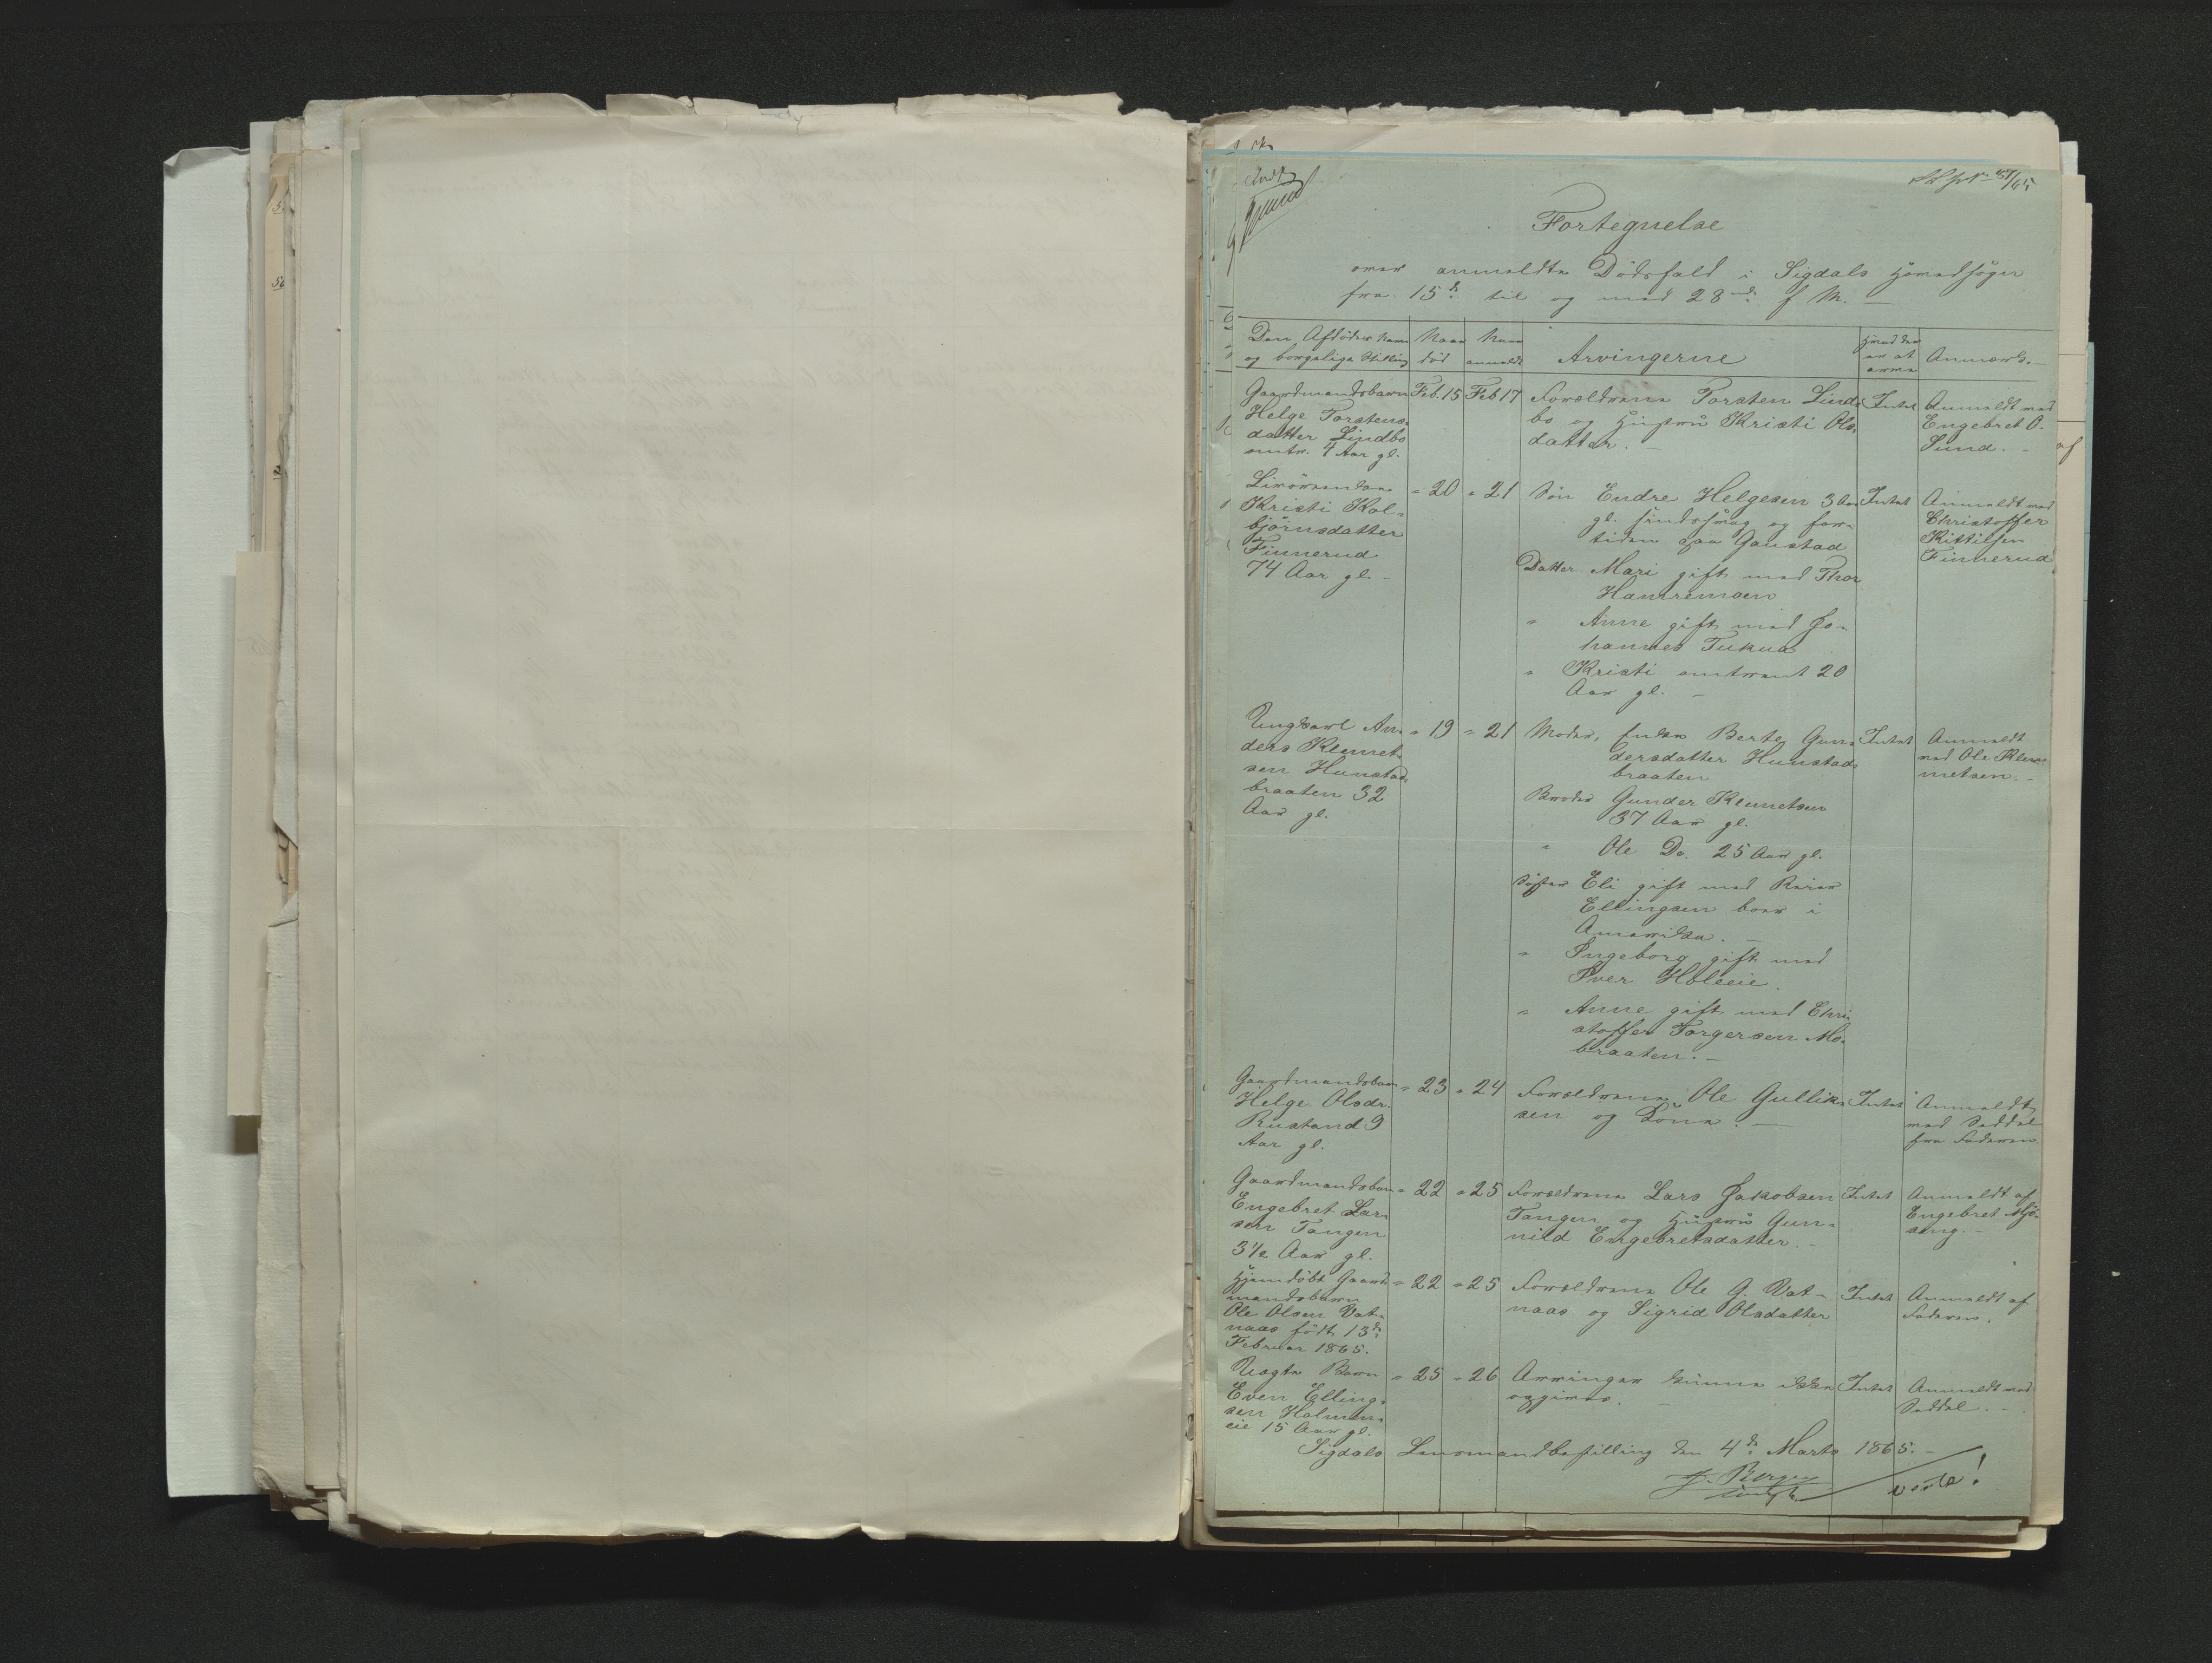 57/65
Fortegnelse
over anmeldte Dödsfald i Sigdals Hovedsogn
fra 15de til og med 28nde f. M. —
Den Afdödes Navn
og borgerlige Stilling
Naar
död
Naar
anmeldt
Arvingerne
Hvad der
er at
arve
Anmærk. —
Gaardmandsbarn
Helge Torstens-
datter Lindbo
omtr. 4 Aar gl.
Feb. 15
Feb 17
Forældrene Torsten Lind-
bo og Hustru Kristi Ols-
datter. —
Intet
Anmeldt med
Engebret O.
Lund. —
Livörenken
Kristi Kol-
björnsdatter
Finnerud
74 Aar gl. —
" 20
" 21
Sön Endre Helgesen 3 Aar
gl. sindssvag og for-
tiden paa Gaustad
Datter Mari gift med Thor
Hamremoen
" Anne gift med Jo-
hannes Tukua
" Kristi omtrent 20
Aar gl. —
Intet
Anmeldt med
Christoffer
Kittilsen
Finnerud
Ungkarl An-
ders Klemet-
sen Hunstad-
braaten 32
Aar gl.
" 19
" 21
Moder, Enke Berte Gun-
dersdatter Hunstad-
braaten
Broder Gunder Klemetsen
37 Aar gl.
" Ole Do. 25 Aar gl.
Söster Eli gift med Reier
Ellingsen boer i
Amerika. —
" Ingeborg gift med
Iver Holeeie.
" Anne gift med Chri-
stoffer Torgersen Mo-
braaten. —
Intet
Anmeldt
ved Ole Klem-
metsen. —
Gaardmandsbarn
Helge Olsdr.
Rustand 9
Aar gl.
" 23
" 24
Forældrene Ole Gullik-
sen og Kone. —
Intet
Anmeldt
med Seddel
fra Faderen
Gaardmandsbarn
Engebret Lar-
sen Tangen
3 1/2 Aar gl.
" 22
" 25
Forældrene Lars Jakobsen
Tangen og Hustru Gun-
nild Engebretsdatter. —
Intet
Anmeldt af
Engebret
Hjemdöbt Gaard-
mandsbarn
Ole Olsen Vat-
naas född 13de
Februar 1865.
" 22
" 25
Forældrene Ole G. Vat-
naas og Sigrid Olsdatter
Intet
Anmeldt af
Faderen.
Uægte Barn
Even Elling-
sen Holmen-
eie 15 Aar gl.
" 25
" 26
Arvinger kunne ikke
opgives. —
Intet
Anmeldt med
Seddel. —
Sigdals Lensmandbestilling den 4de Marts 1865. —
Vend!